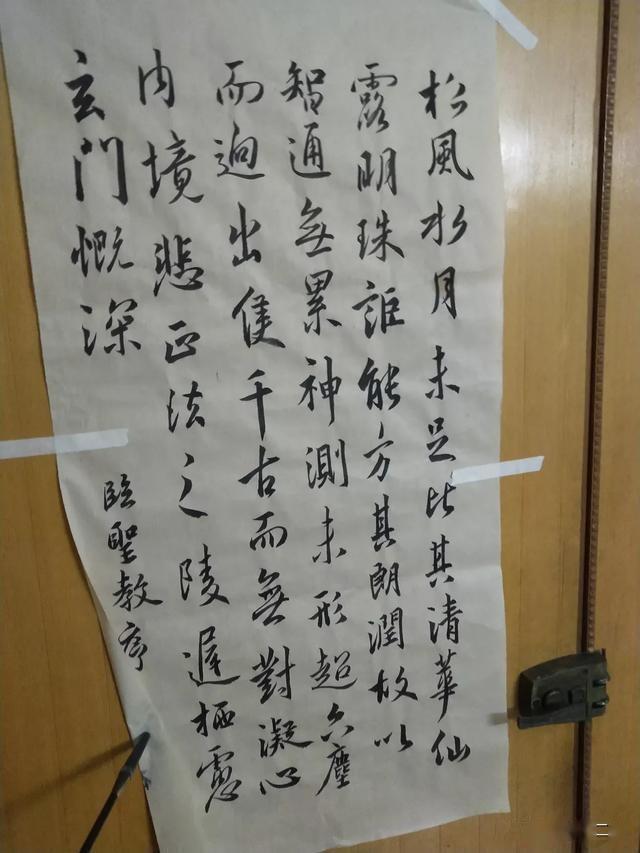 松風水月未足比其清華仙
露明珠詎能方其朗潤故以
智通無累神測未形超六塵
而迥出隻千古而無對凝心
内境悲正法之陵遲栖慮
玄門慨深
臨聖教序
二